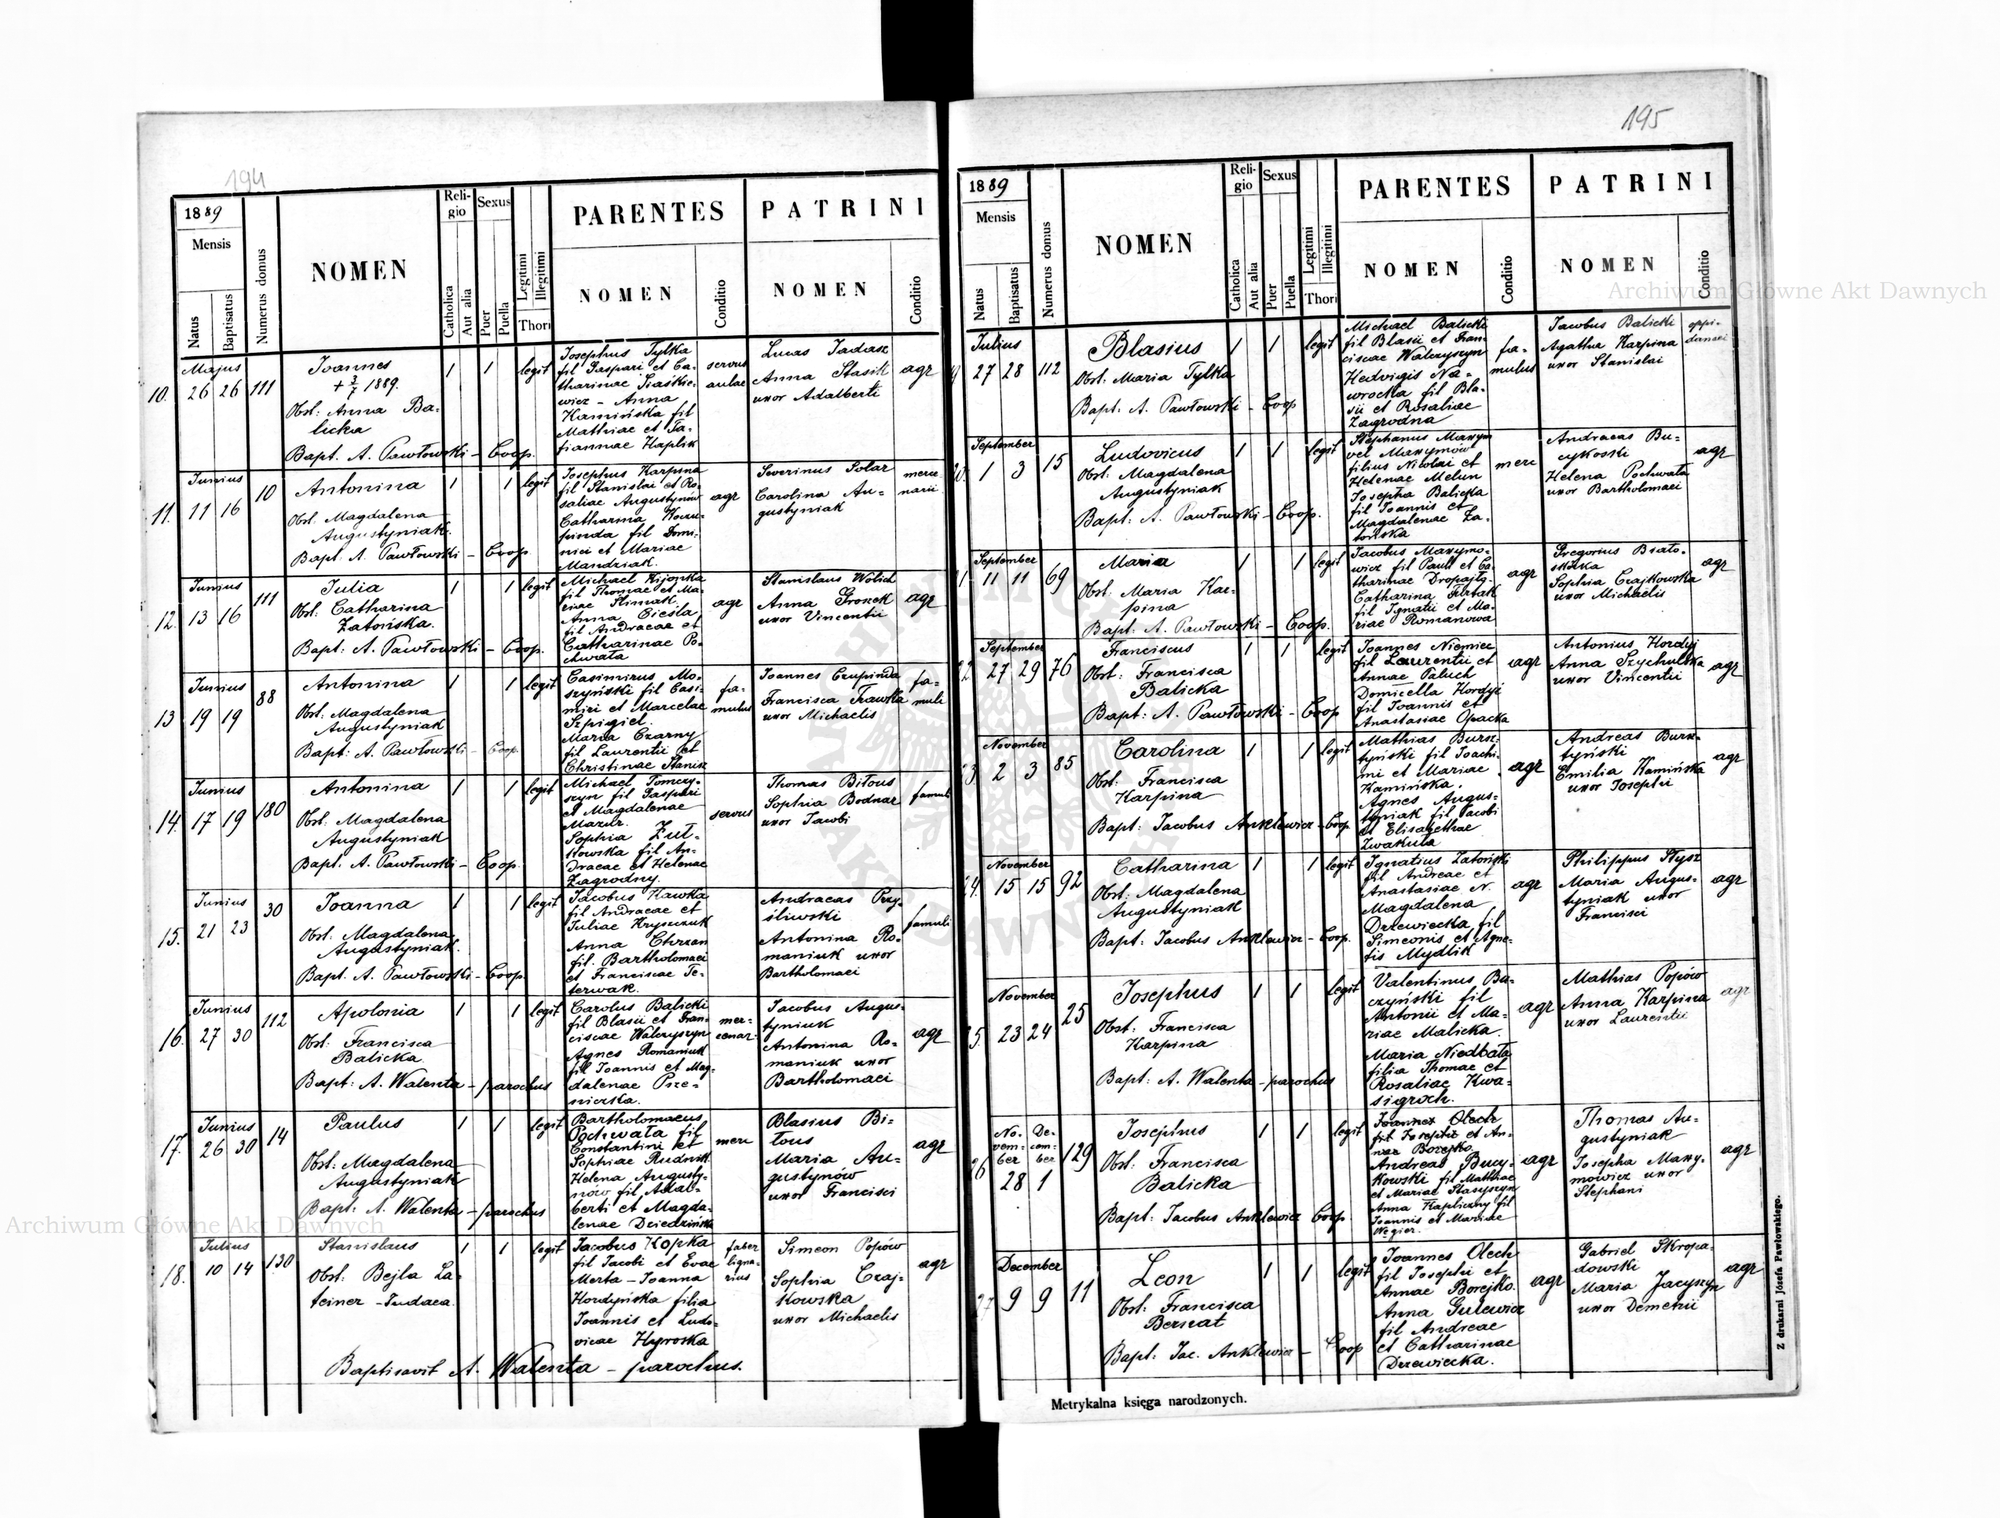 194
1889
Mensis
Natus
Baptisatus
Numerus domus
NOMEN
Religio
Catholica
Aut alia
Sexus
Puer
Puella
Legitimi
Illegitimi
Thori
PARENTES
NOMEN
Conditio
PATRINI
NOMEN
Conditio
10.
Majus
26 26 111
Joannes
+ 3/7 1889.
Obst: Anna Ba-
licka
Bapt. A. Pawłowski - Coop.
1 1 legit
Josephus Tylka
fil Gaspari et Ca-
tharinae
wicz - Anna
Kamińska fil
Mathiae et Ta-
tiannae Kaplik
servus
aulae
Lucas Tadasz
Anna Stasik
uxor Adalberti
agr
11.
Junius
11 16 10
Antonina
Obst. Magdalena
Augustyniak.
Bapt. A. Pawłowski - Coop
1 1 legit
Josephus Karpina
fil Stanislai et Ro-
saliae Augustynów
Catharina
fil Domi-
nici et Mariae
Mandziak.
agr
Severinus Solar
Carolina Au-
gustyniak
merce-
narii
12.
Junius
13 16 111
Julia
Obst. Catharina
Zatońska.
Bapt. A. Pawłowski - Coop.
1 1 legit
Michael Kijonka
fil Thomae et Ma-
riae Slimak
Anna Cieśla
fil Andraeae et
Catharinae Po-
chwała
agr
Stanislaus Wolich
Anna Gronek
uxor Vincentii
agr
13
Junius
19 19 88
Antonina
Obst. Magdalena
Augustyniak
Bapt. A. Pawłowski - Coop.
1 1 legit
Casimirus Mo-
szyński fil Casi-
miri et Marcelae
Szpigiel.
Maria Czarny
fil Laurentii et
Christinae Stanisz
fa-
mulus
Joannes Czupinda
Francisca Trawka
uxor Michaelis
fa-
muli
14.
Junius
17 19 180
Antonina
Obst. Magdalena
Augustyniak
Bapt. A. Pawłowski - Coop.
1 1 legit
Michael Tomczy-
szyn fil Gaspari
et Magdalenae
Mazur.
Sophia Żuł-
kowska fil An-
draeae et Helenae
Zagrodny.
servus
Thomas Bitous
Sophia Bodnar
uxor Jacobi
famuli
15.
Junius
21 23 30
Joanna
Obst. Magdalena
Augustyniak.
Bapt. A. Pawłowski - Coop.
1 1 legit
Jacobus Kawka
fil Andraeae et
Juliae Kryszczuk
Anna Chrzan
fil. Bartholomaei
et Franciscae Te-
terwak.
Andraeas Przy-
śliwski
Antonina Ro-
maniuk uxor
Bartholomaei
famuli
16.
Junius
27 30 112
Apolonia
Obst: Francisca
Balicka.
Bapt: A. Walenta - parochus
1 1 legit
Carolus Balicki
fil Blasii et Fran-
ciscae Walczyszyn
Agnes Romaniuk
fil Joannis et Mag-
dalenae Psze-
niczka.
mer-
cenar.
Jacobus Augus-
tyniuk
Antonina Ro-
maniuk uxor
Bartholomaei
agr
17.
Junius
26 30 14
Paulus
Obst: Magdalena
Augustyniak
Bapt: A. Walenta - parochus
1 1 legit
Bartholomaeus
Pochwała fil
Constantini et
Sophiae Rudnik
Helena Augusty-
nów fil. Adal-
berti et Magda-
lenae Dziedzińska
merc
Blasius Bi-
tous
Maria Au-
gustynów
uxor Francisci
agr
18.
Julius
10 14 130
Stanislaus
Obst: Bejla La-
teiner - Judaea.
1 1 legit
Jacobus Kopka
fil Jacobi et Evae
Merta - Joanna
Hordyńska filia
Joannis et Ludo-
vicae Hyroska
faber
ligna-
rius
Simeon Popów
Sophia Czaj-
kowska
uxor Michaelis
agr
Baptisavit A. Walenta - parochus.
195
1889
Mensis
Natus
Baptisatus
Numerus domus
NOMEN
Religio
Catholica
Aut alia
Sexus
Puer
Puella
Legitimi
Illegitimi
Thori
PARENTES
NOMEN
Conditio
PATRINI
NOMEN
Conditio
Julius
27 28 112
Blasius
Obst: Maria Tylka
Bapt: A. Pawłowski - Coop
1 1 legit
Michael Balicki
fil Blasii et Fran-
ciscae Walczyszyn
Hedvigis Na-
wrocka fil Bla-
sii et Rosaliae
Zagrodna
fa-
mulus
Jacobus Balicki
Agatha Karpina
uxor Stanislai
oppi-
danei
September
1 3 15
Ludovicus
Obst: Magdalena
Augustyniak
Bapt: A. Pawłowski - Coop.
1 1 legit
Stephanus Maxym
vel Maxymów
filius Nicolai et
Helenae Melun
Josepha Balicka
fil Joannis et
Magdalenae Za-
tońska
merc
Andraeas Bu-
cykoski
Helena Pochwała
uxor Bartholomaei
agr
September
11 11 69
Maria
Obst: Maria Kar-
pina
Bapt: A. Pawłowski - Coop.
1 1 legit
Jacobus Maxymo-
wicz fil Pauli et Ca-
tharinae Dropajło-
Catharina Flatak
fil Ignatii et Ma-
riae Romanowa
agr
Gregorius Bsato-
skórka
Sophia Czajkowska
uxor Michaelis
agr
September
27 29 76
Franciscus
Obst: Francisca
Balicka
Bapt: A. Pawłowski - Coop
1 1 legit
Joannes Niemiec
fil Laurentii et
Annae Paluch
Domicella Hordyj
fil Joannis et
Anastasiae Opacka
agr
Antonius Hordyj
Anna Szychulska
uxor Vincentii
agr
November
2 3 85
Carolina
Obst: Francisca
Karpina
Bapt: Jacobus Anklewicz - Coop
1 1 legit
Mathias Bursz-
tyński fil Joachi-
mi et Mariae
Kamińska.
Agnes Augus-
tyniak fil Jacobi
et Elisabethae
Zwakuła
agr
Andreas Bursz-
tyński
Emilia Kamińska
uxor Josephi
agr
November
15 15 92
Catharina
Obst: Magdalena
Augustyniak
Bapt: Jacobus Anklewicz - Coop.
1 1 legit
Ignatius Zatoński
fil Andreae et
Anastasiae N.
Magdalena
Drzewiecka fil
Simeonis et Agne-
tis Mydlik
agr
Philippus Stysz
Maria Augus-
tyniak uxor
Francisci
agr
November
23 24 25
Josephus
Obst: Francisca
Karpina
Bapt: A. Walenta - parochus
1 1 legit
Valentinus Ba-
czyński fil
Antonii et Ma-
riae Malicka.
Maria Niedbała
filia Thomae et
Rosaliae Kwa-
sigroch.
agr
Mathias Popów
Anna Karpina
uxor Laurentii
agr
26
No-
vem-
ber
28
De-
cem-
ber
1
129
Josephus
Obst: Francisca
Balicka
Bapt: Jacobus Anklewicz Coop
1 1 legit
Joannes Olech
fil Josephi et An-
nae Borejko
Andreas Bucy-
kowski fil Matthiae
et Mariae Stasyszyn
Anna Kapliczny fil
Joannis et Mariae
Węgier.
agr
Thomas Au-
gustyniak
Josepha Maxy-
mowicz uxor
Stephani
agr
27
December
9 9 11
Leon
Obst: Francisca
Bernat
Bapt: Jac. Anklewicz - Coop
1 1 legit
Joannes Olech
fil Josephi et
Annae Borejko.
Anna Gulewicz
fil Andreae
et Catharinae
Drzewiecka.
agr
Gabriel Skropa-
dowski
Maria Jacyszyn
uxor Demetrii
agr
Metrykalna księga narodzonych.
Z drukarni Józefa Pawłowskiego.
Archiwum Główne Akt Dawnych
Archiwum Główne Akt Dawnych
ARCHIWUM GŁÓWNE AKT DAWNYCH